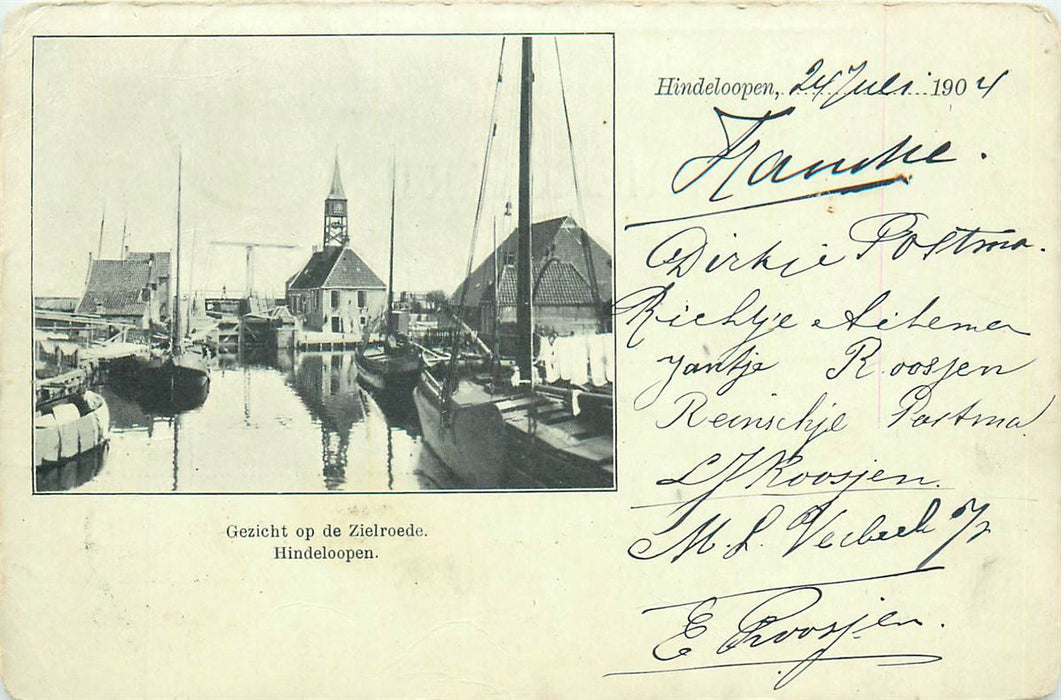 Hindeloopen, 24 Juli 1904
Dirkje Postma.
Richtje
Jantje Roosjen
Reinschje Postma
L J Roosjen.
M. L.
E Roosjen.
Gezicht op de Zielroede.
Hindeloopen.